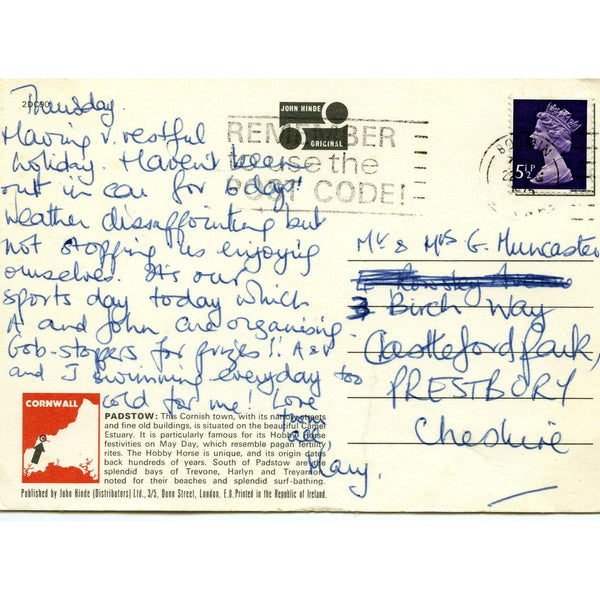 2DC901
Thursday
Having v. restful
holiday. Haven't been
out in car for 6 days!
Weather dissappointing but
not stopping us enjoying
ourselves. It's our
sports day today which
A and John are organising.
Gob-stoppers for prizes!! A & V
and J swimming everyday too
cold for me! Love
Mary.
JOHN HINDE
ORIGINAL
REMEMBER
to use the
POST CODE!
5½P
Mr & Mrs G. Muncaster
3 Birch Way
Castleford Park,
PRESTBURY
Cheshire
CORNWALL
PADSTOW: This Cornish town, with its narrow streets
and fine old buildings, is situated on the beautiful Camel
Estuary. It is particularly famous for its Hobby Horse
festivities on May Day, which resemble pagan fertility
rites. The Hobby Horse is unique, and its origin dates
back hundreds of years. South of Padstow are the
splendid bays of Trevone, Harlyn and Treyarnon
noted for their beaches and splendid surf-bathing.
Published by John Hinde (Distributors) Ltd., 3/5, Dunn Street, London, E.8. Printed in the Republic of Ireland.